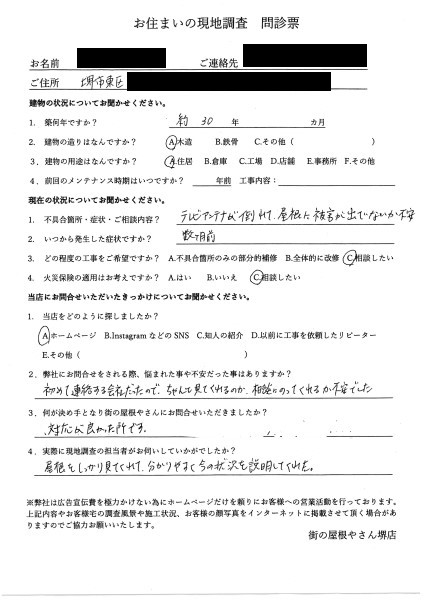 お住まいの現地調査 問診票
お名前 ご連絡先
ご住所 堺市東区
建物の状況についてお聞かせください。
1. 築何年ですか？ 約 30 年 カ月
2. 建物の造りはなんですか？ A.木造 B.鉄骨 C.その他（ ）
3. 建物の用途はなんですか？ A.住居 B.倉庫 C.工場 D.店舗 E.事務所 F.その他
4. 前回のメンテナンス時期はいつですか？ 年前 工事内容：
現在の状況についてお聞かせください。
1. 不具合箇所・症状・ご相談内容？ テレビアンテナが倒れて、屋根に被害が出てないか不安
2. いつから発生した症状ですか？ 数ヶ月前
3. どの程度の工事をご希望ですか？ A.不具合箇所のみの部分的補修 B.全体的に改修 C.相談したい
4. 火災保険の適用はお考えですか？ A.はい B.いいえ C.相談したい
当店にお問合せいただいたきっかけについてお聞かせください。
1. 当店をどのように探しましたか？
A.ホームページ B.Instagram などの SNS C.知人の紹介 D.以前に工事を依頼したリピーター
E.その他（ ）
2. 弊社にお問合せをされる際、悩まれた事や不安だった事はありますか？
初めて連絡する会社だったので、ちゃんと見てくれるのか、相談にのってくれるか不安でした
3. 何が決め手となり街の屋根やさんにお問合せいただきましたか？
対応が良かった所です。
4. 実際に現地調査の担当者がお伺いしていかがでしたか？
屋根をしっかり見てくれて、分かりやすく今の状況を説明してくれた。
※弊社は広告宣伝費を極力かけない為にホームページだけを頼りにお客様への営業活動を行っております。
上記内容やお客様宅の調査風景や施工状況、お客様の顔写真をインターネットに掲載させて頂く場合があ
りますのでご協力お願いいたします。
街の屋根やさん堺店